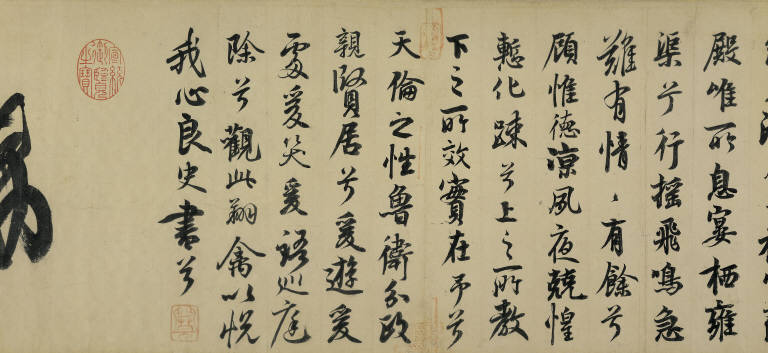 殿唯所息宴栖雍
渠兮行搖飛鳴急
難有情〻有餘兮
顧惟德涼夙夜兢惶
慙化踈兮上之所教
下之所效實在予兮
天倫之性魯衛分政
親賢居兮爰遊爰
處爰笑爰語巡庭
除兮觀此翔禽以悅
我心良史書兮
宣統御覽之寶